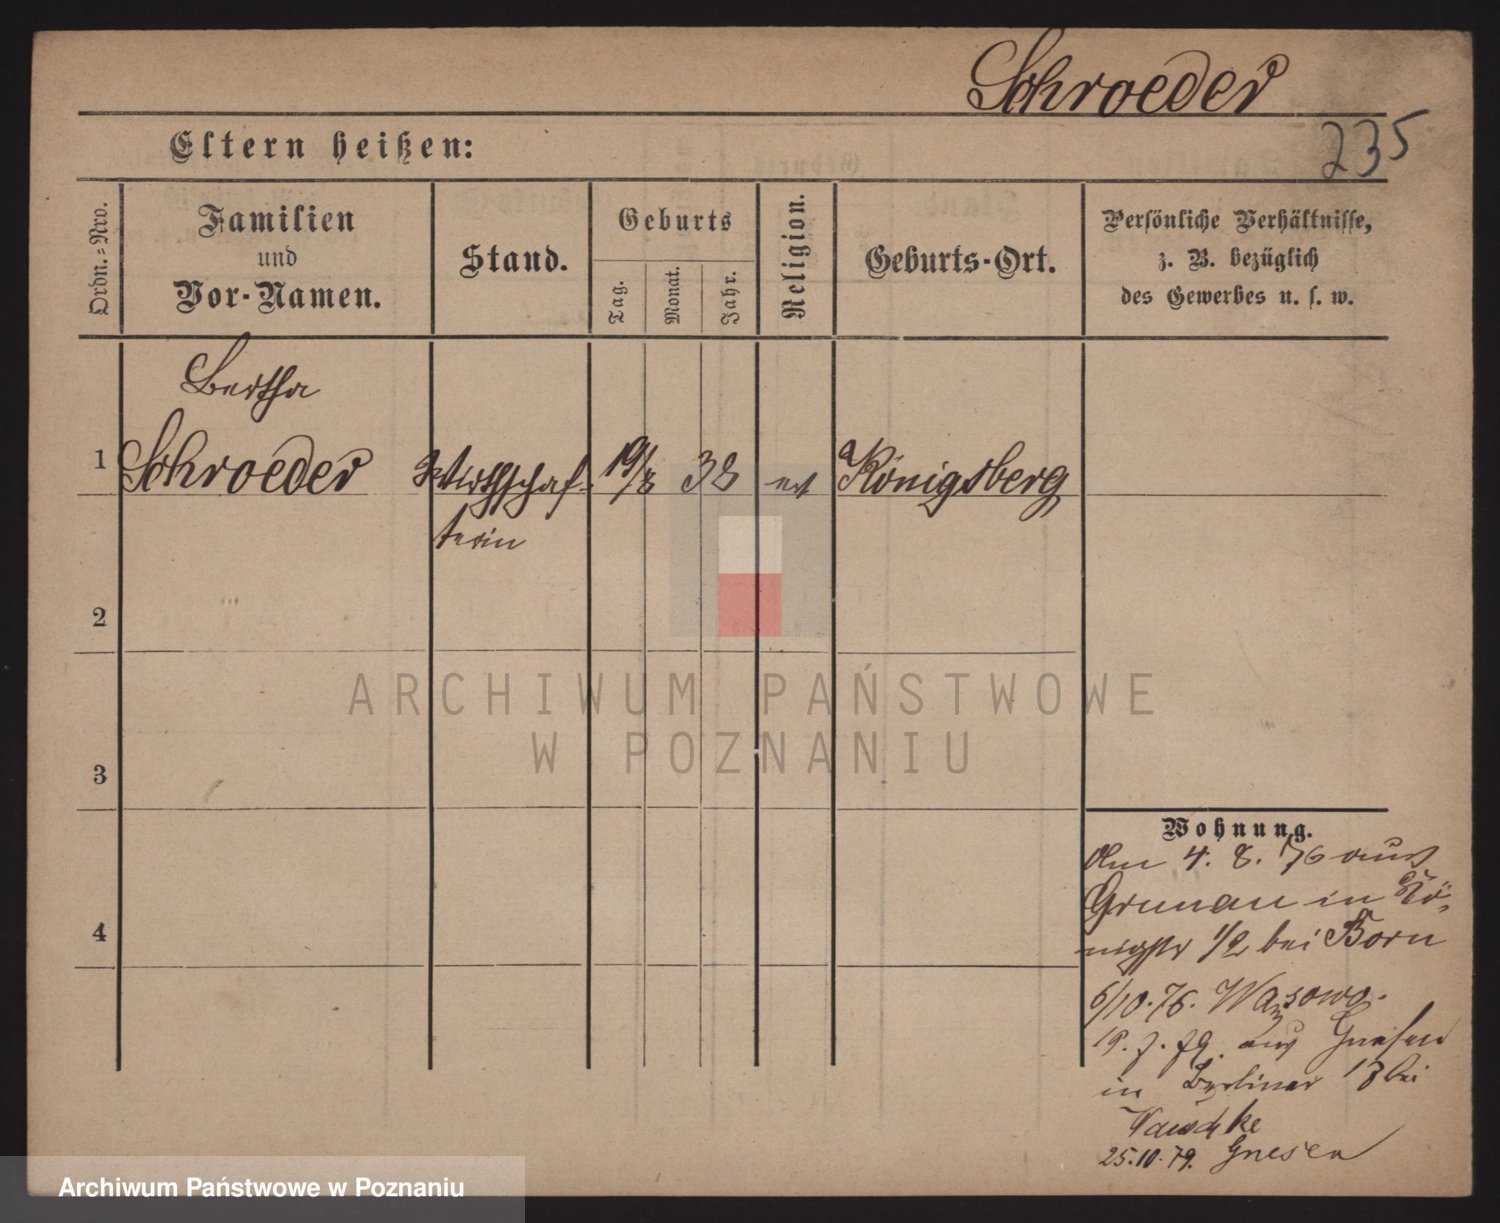 Schroeder
235
Eltern heißen:
Ordn.-Nro.
Familien
und
Vor-Namen.
Stand.
Geburts
Tag.
Monat.
Jahr.
Religion.
Geburts-Ort.
Persönliche Verhältnisse,
z. B. bezüglich
des Gewerbes u. s. w.
Bertha
1 Schroeder Wirthschaf- 19/8 38 ev Königsberg
terin
2
3
4
Wohnung.
Am 4. 8. 76 aus
Grunau in Kö-
nigstr 1/2 bei Born
6/10.76. Wąsowo.
19. 7. 79. aus Gnesen
in Berliner 13 bei
25.10.79. Gnesen
ARCHIWUM PAŃSTWOWE
W POZNANIU
Archiwum Państwowe w Poznaniu